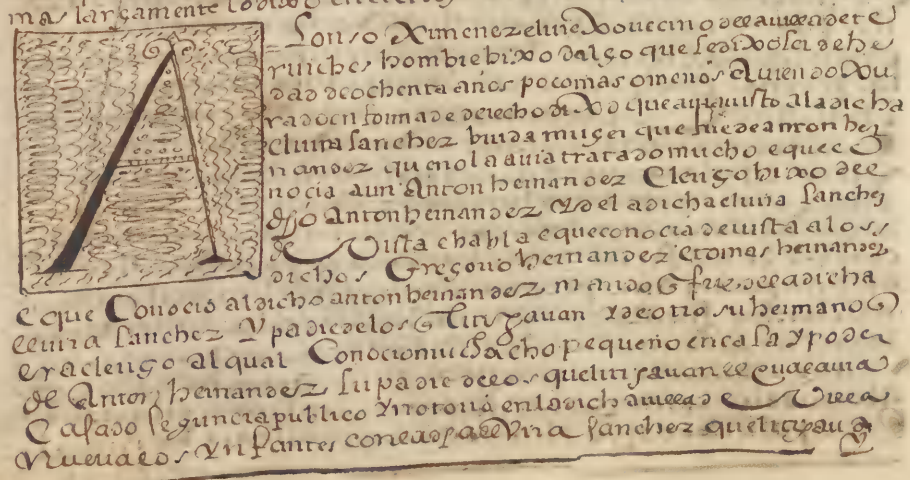 mas largamente
Alonso Ximenez el viexo vecino de la villa de
ruiches hombre hixo dalgo que se dixo ser de he
dad de ochenta años poco mas o menos El quien do xu
rado en forma de derecho dixo que auia uisto a la dicha
eluira sanchez biuda muger que fue de anton her
nandez que no la auia tratado mucho e que co
nocia a un Anton hernandez Clerigo hixo del
dho Anton hernandez e de la dicha eluira sanchez
de Vista e habla e que conocia de uista a los
dichos Gregorio hernandez e tomas hernandez
e que Conocio al dicho anton hernandez marido q fue de la dicha
eluira sanchez y padre de los q litigauan y de otro su hermano q
era clerigo al qual Conocio muchacho pequeño en casa y poder
de Anton hernandez su padre de los que litigauan el qual auia
Casado segun era publico y notorio en la dicha villa de Villa
Nueua de los ynfantes con la dha elvira sanchez que litigaua
y